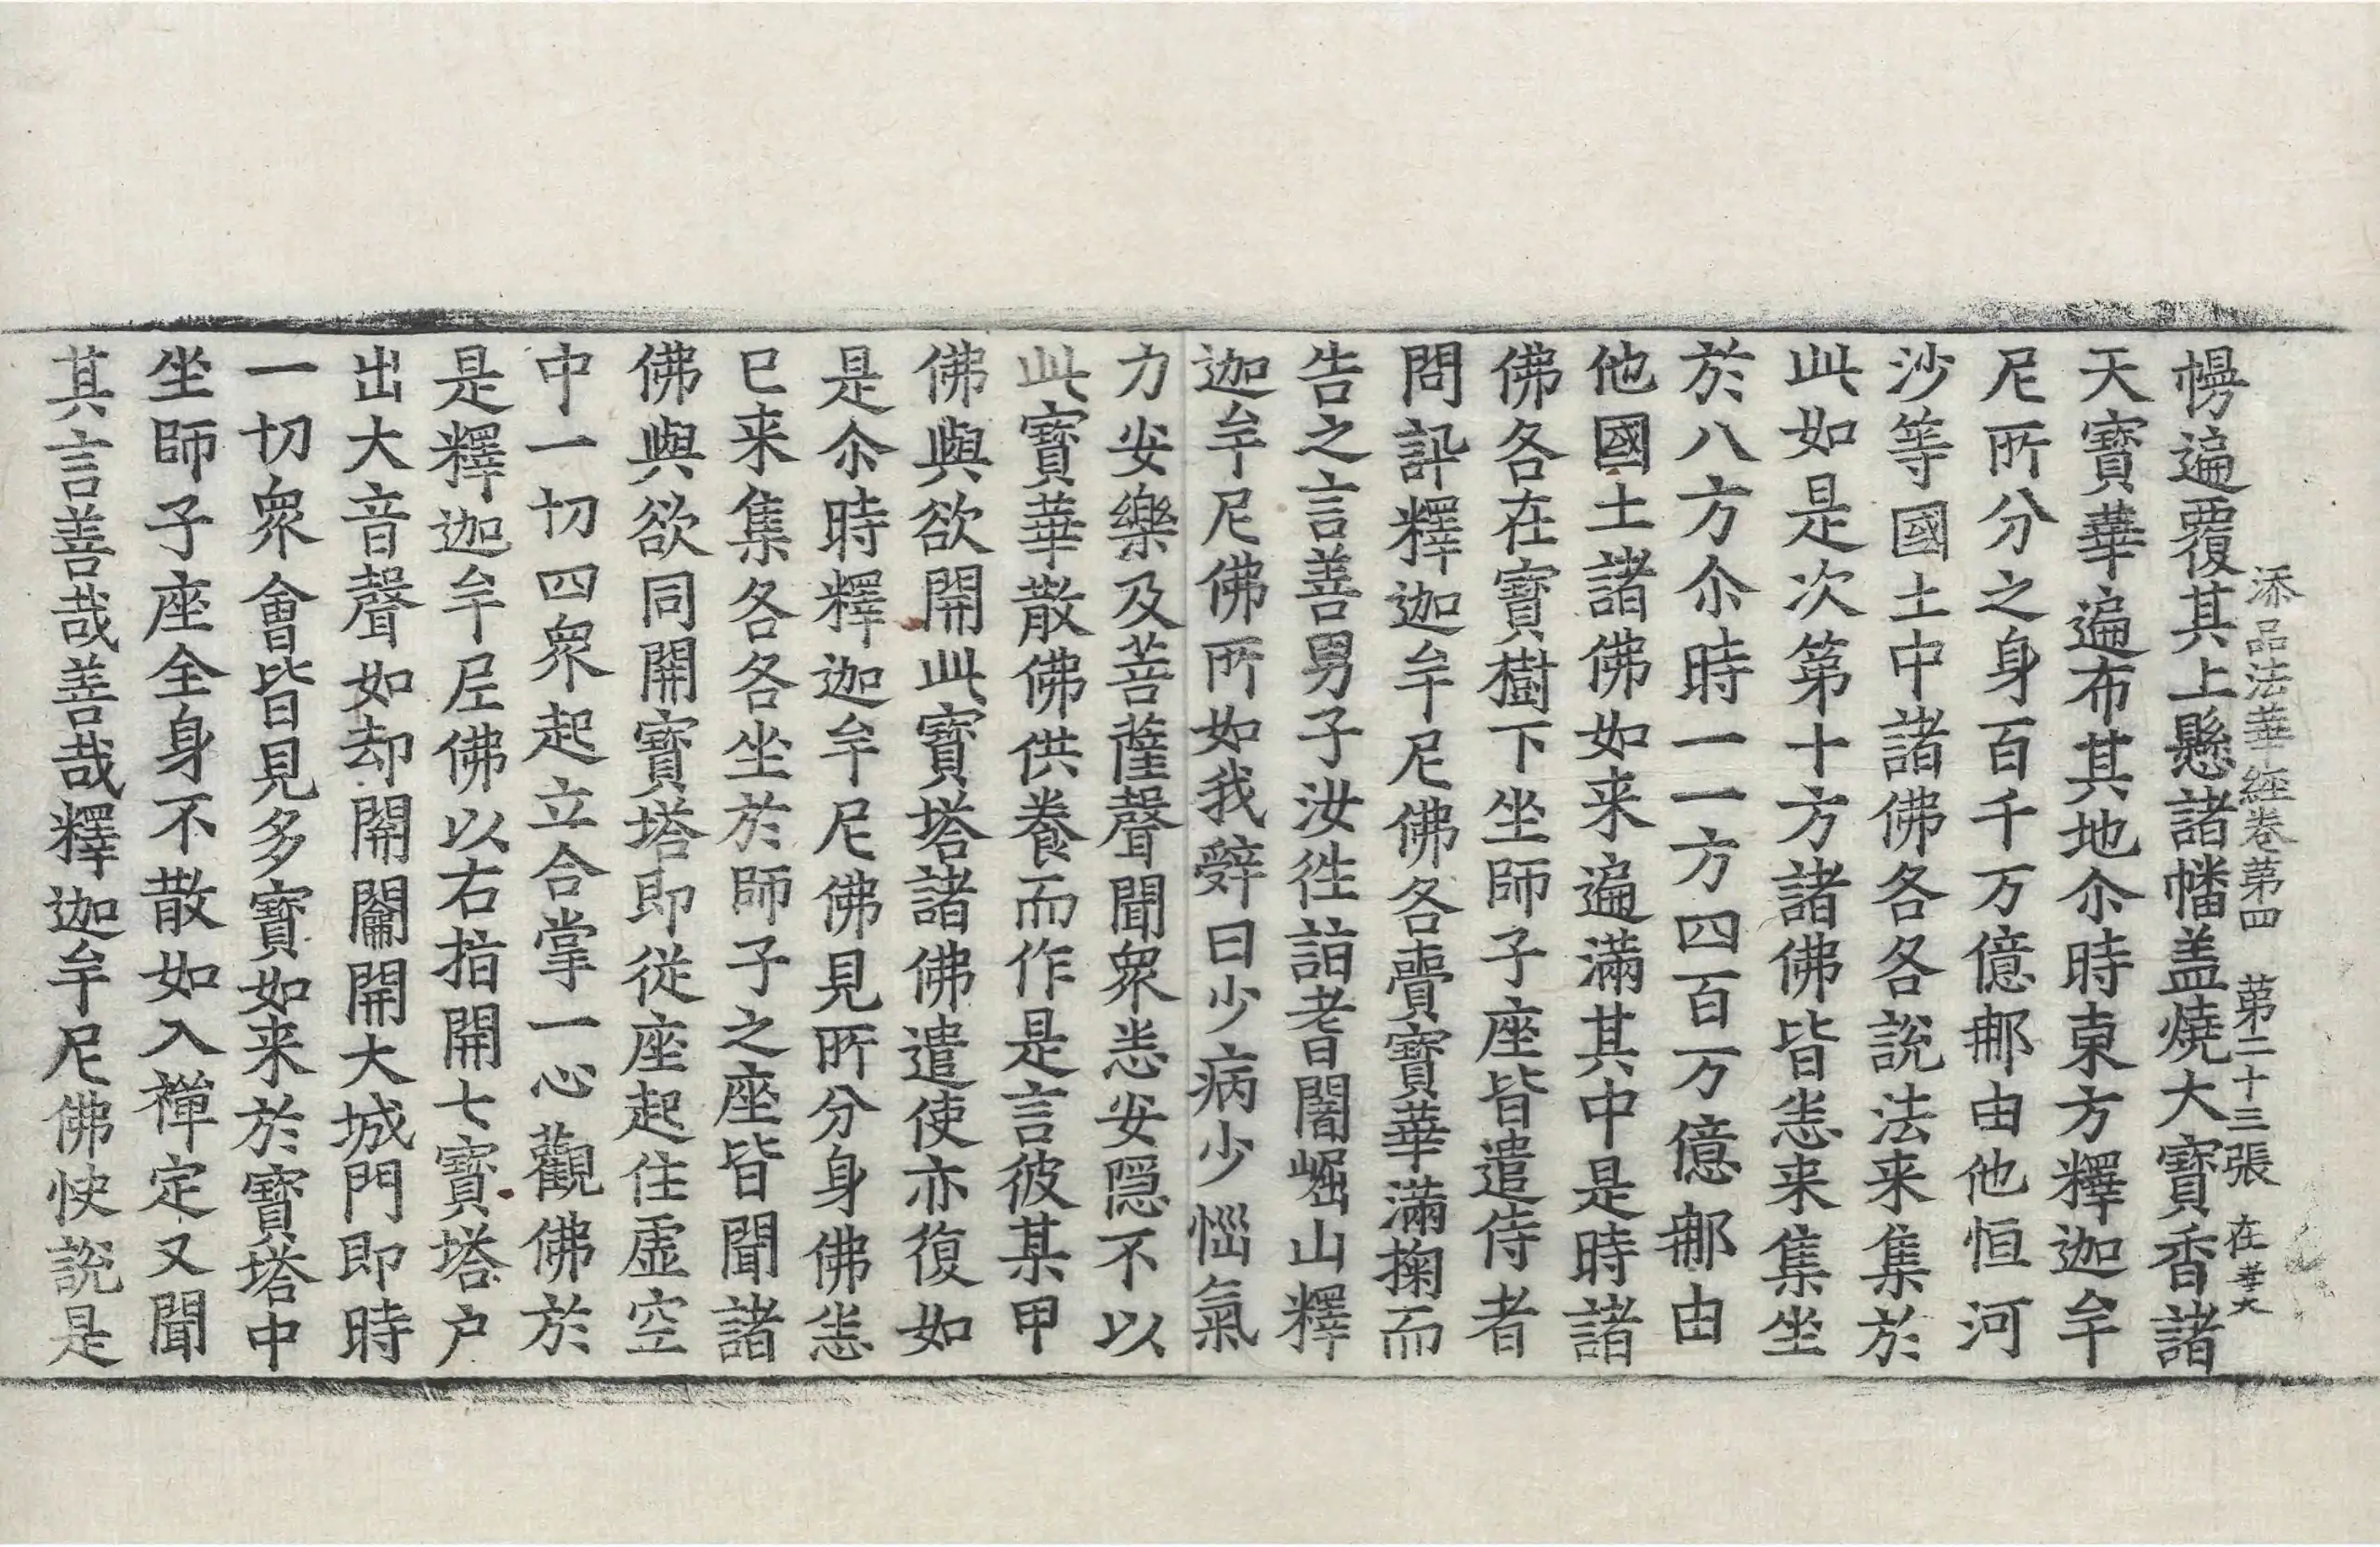 添品法華經卷第四 第二十三張 在 華大
幔遍覆其上懸諸幡盖燒大寶香諸
天寶華遍布其地尒時東方釋迦牟
尼所分之身百千万億𨙻由他恒河
沙等國土中諸佛各各說法来集於
此如是次第十方諸佛皆悉来集坐
於八方尒時一一方四百万億𨙻由
他國土諸佛如来遍滿其中是時諸
佛各在寶樹下坐師子座皆遣侍者
問訊釋迦牟尼佛各賷寶華滿掬而
告之言善男子汝徃詣耆闍崛山釋
迦牟尼佛所如我辤曰少病少惱氣
力安樂及菩薩聲聞衆悉安隱不以
此寶華散佛供養而作是言彼某甲
佛與欲開此寶塔諸佛遣使亦復如
是尒時釋迦牟尼佛見所分身佛悉
已来集各各坐於師子之座皆聞諸
佛與欲同開寶塔即從座起住虛空
中一切四衆起立合掌一心觀佛於
是釋迦牟尼佛以右指開七寶塔户
出大音聲如却開鬬開大城門即時
一切衆會皆見多寶如来於寶塔中
坐師子座全身不散如入禪定又聞
其言善哉善哉釋迦牟尼佛快說是